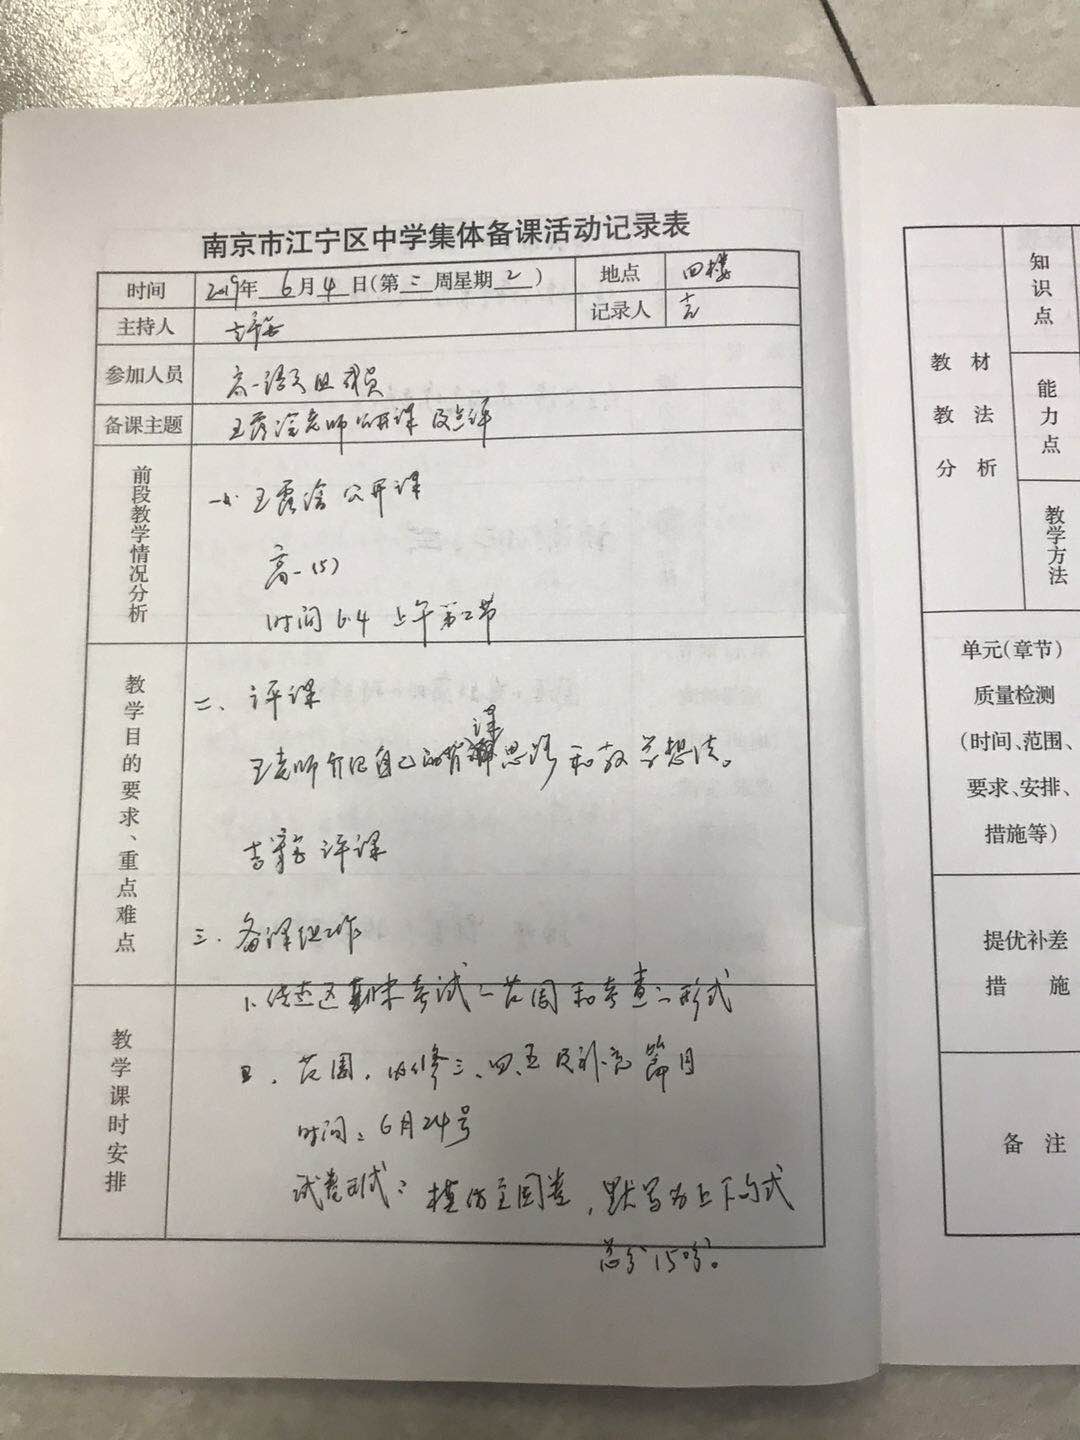 南京市江宁区中学集体备课活动记录表
时间 2019年 6月 4日(第 三 周星期 2 ) 地点 四楼
主持人 记录人 吉
参加人员 高一语文组成员
备课主题 王露 老师公开课及点评
前段教学情况分析
一、王露 公开课
高一(5)
时间 6.4 上午第二节
教学目的要求、重点难点
二、评课
王老师介绍自己的备课思路和教学想法。
吉 评课
三、备课组工作
教学课时安排
1、传达区期末考试:范围和考查:形式
范围,必修三、四、五及补充篇目
时间:6月24号
试卷形式:模仿全国卷,默写为上下句式
总分150分。
知识点
教材教法分析
能力点
教学方法
单元(章节)
质量检测
(时间、范围、
要求、安排、
措施等)
提优补差
措 施
备 注